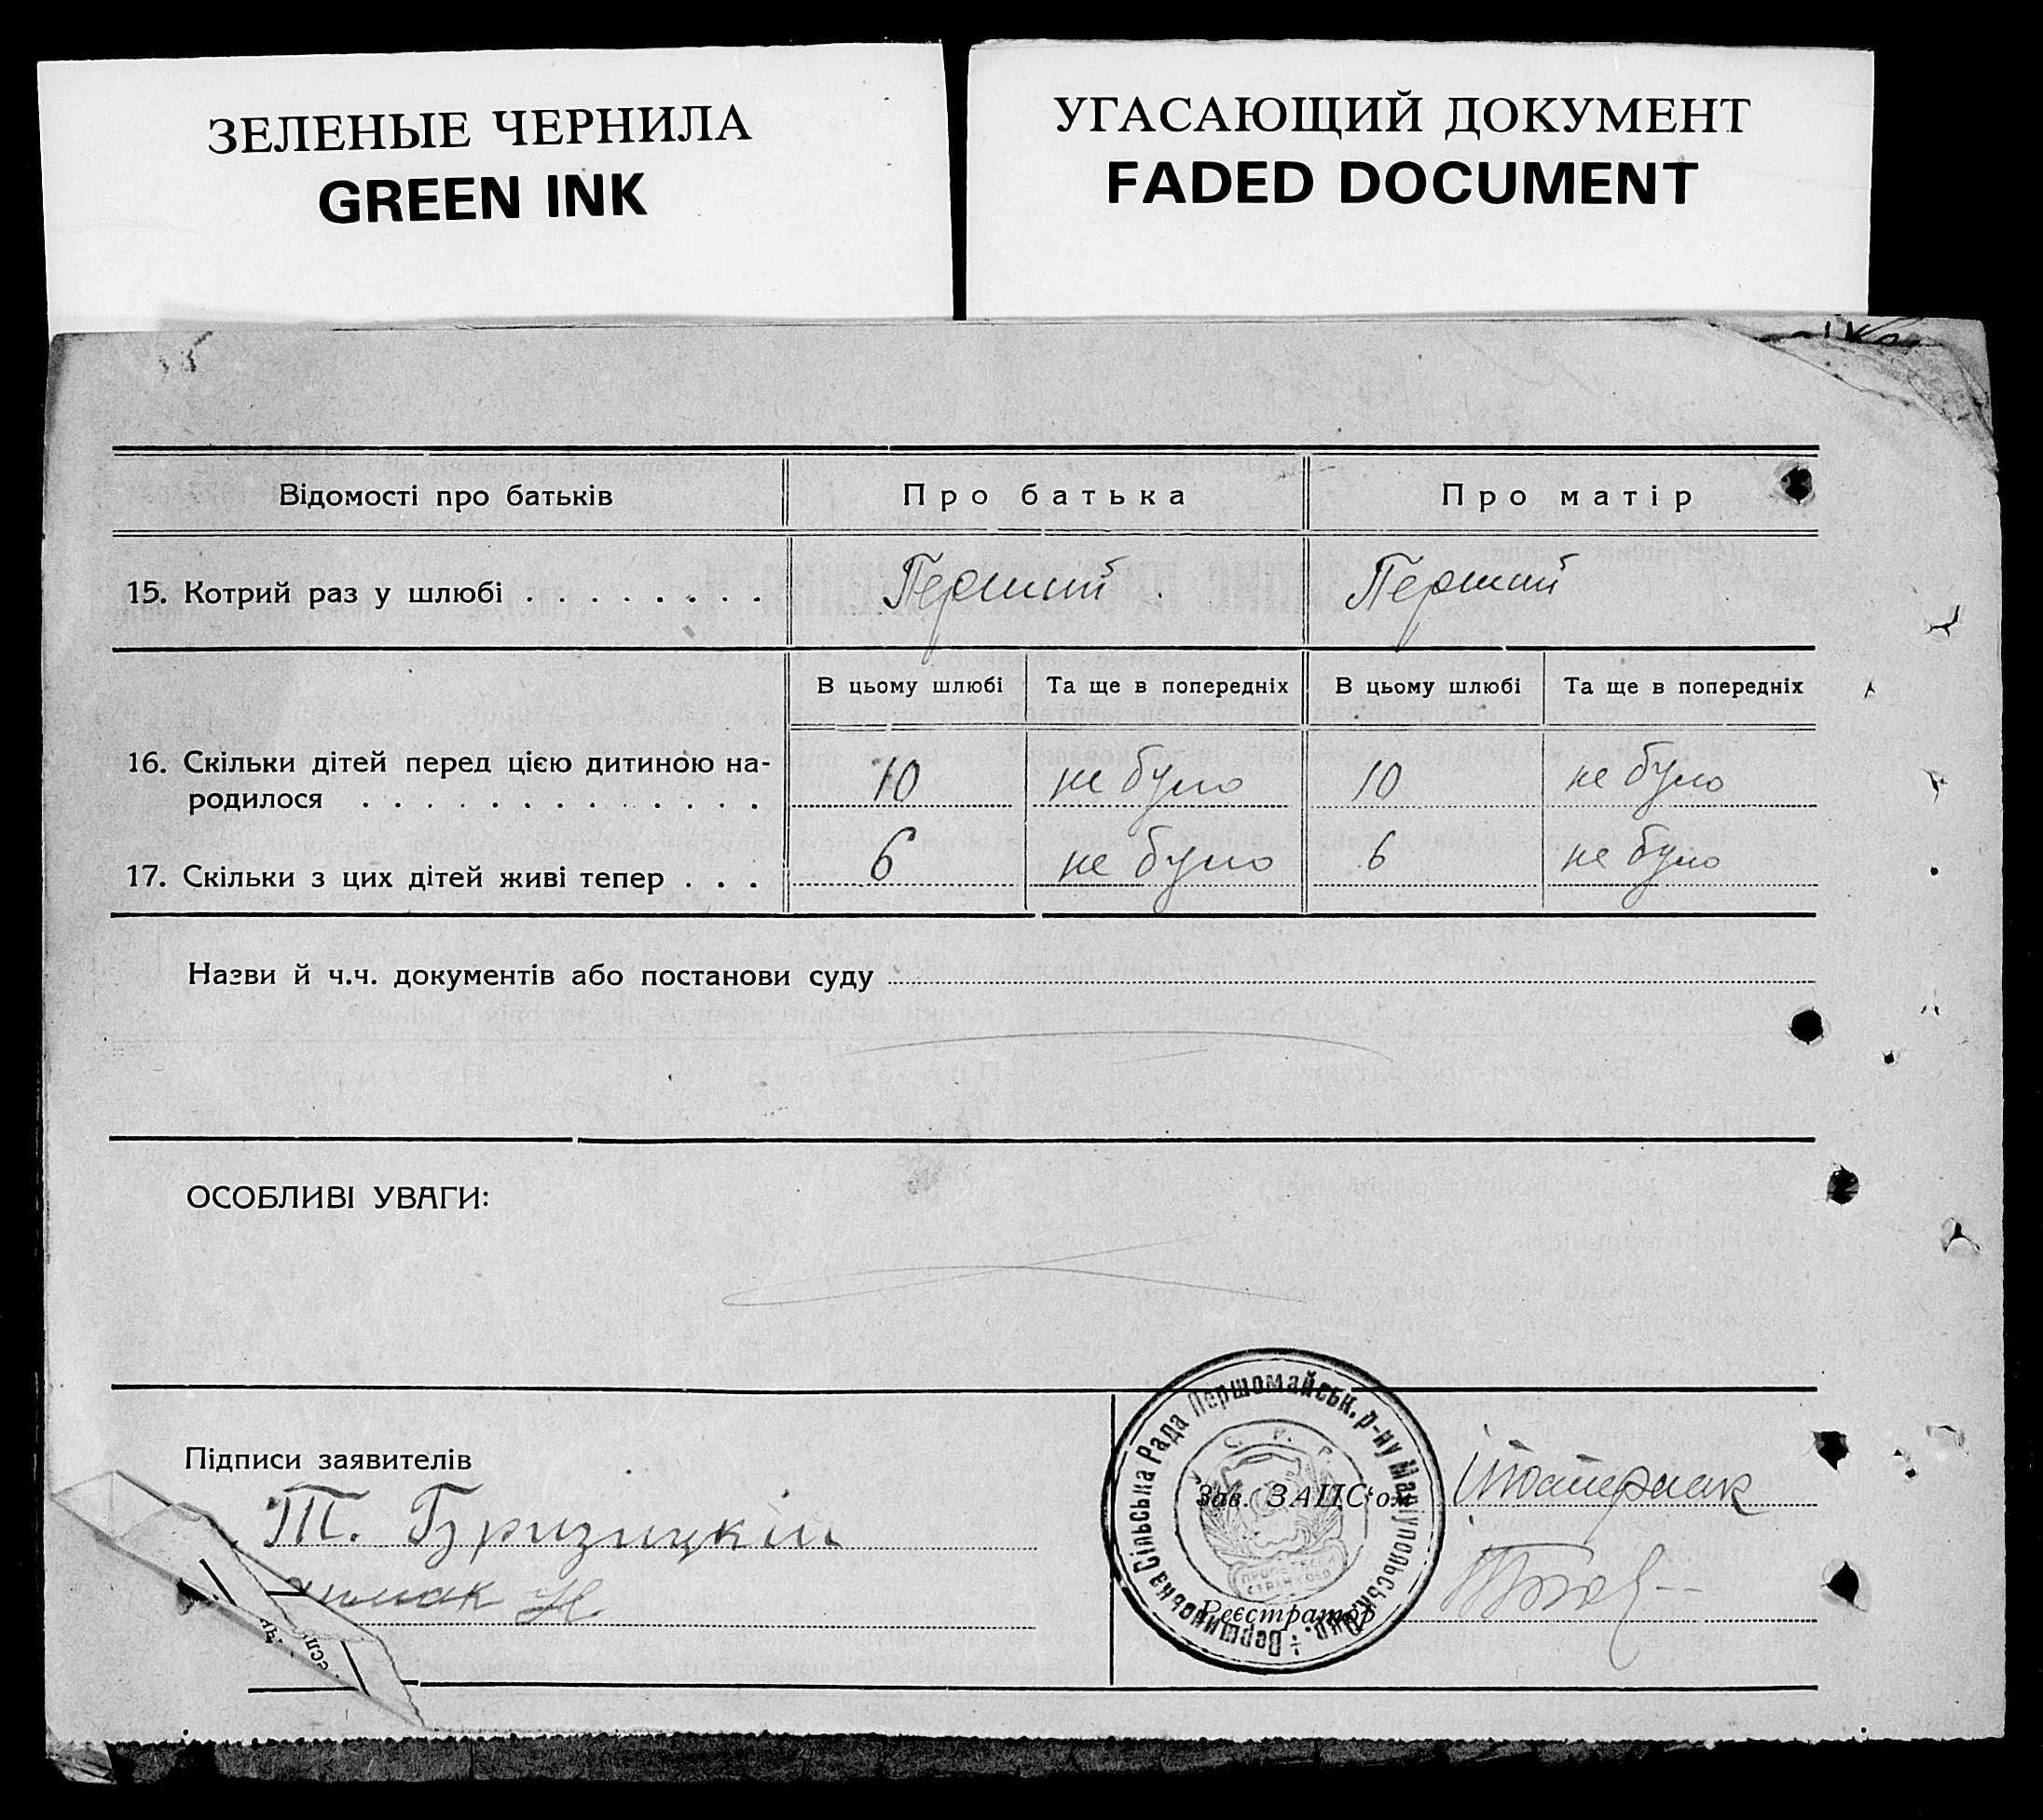 ЗЕЛЕНЫЕ ЧЕРНИЛА
GREEN INK
УГАСАЮЩИЙ ДОКУМЕНТ
FADED DOCUMENT
Відомості про батьків Про батька Про матір
15. Котрий раз у шлюбі . . . . . . . . Перший Перший
В цьому шлюбі Та ще в попередніх В цьому шлюбі Та ще в попередніх
16. Скільки дітей перед цією дитиною на-
родилося . . . . . . . . . . . . . 10 не було 10 не було
17. Скільки з цих дітей живі тепер . . . 6 не було 6 не було
Назви й ч.ч. документів або постанови суду
ОСОБЛИВІ УВАГИ:
Підписи заявителів
Т. Бризицкій
Зав. ЗАЦС‘ом
Реєстратор
Вершинська Сільська Рада Першомайськ. р-ну Маріупольськ. окр.
У. С. Р. Р.